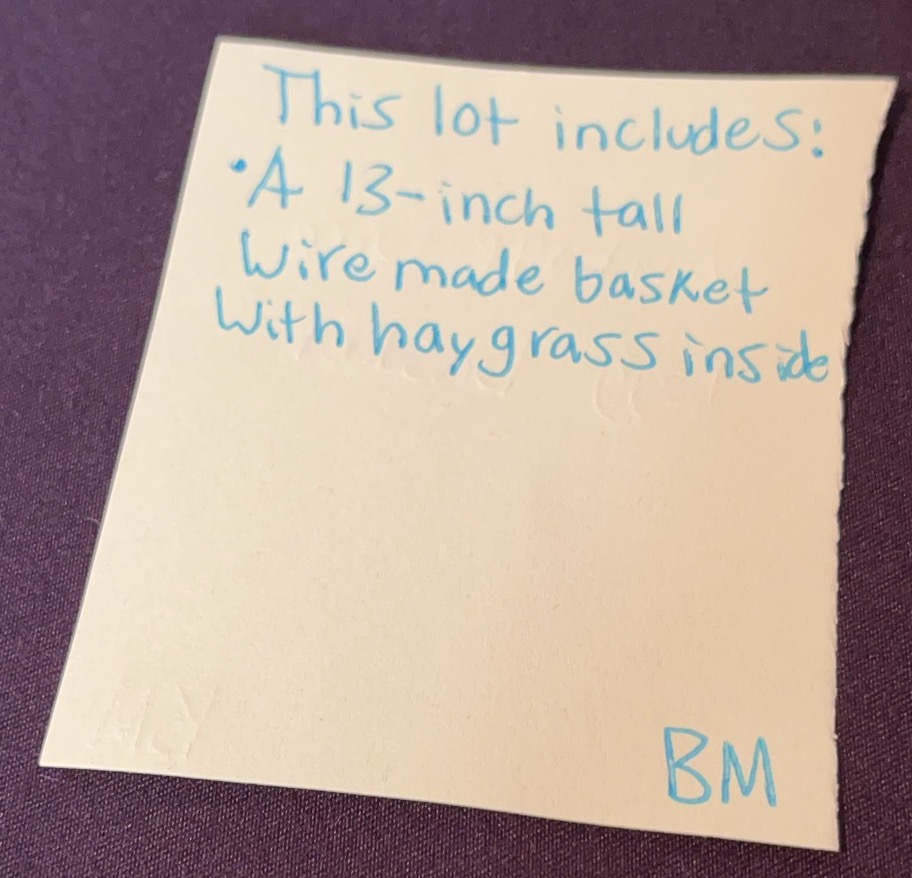 This lot includes:
•A 13-inch tall
Wire made basket
With haygrass inside
BM